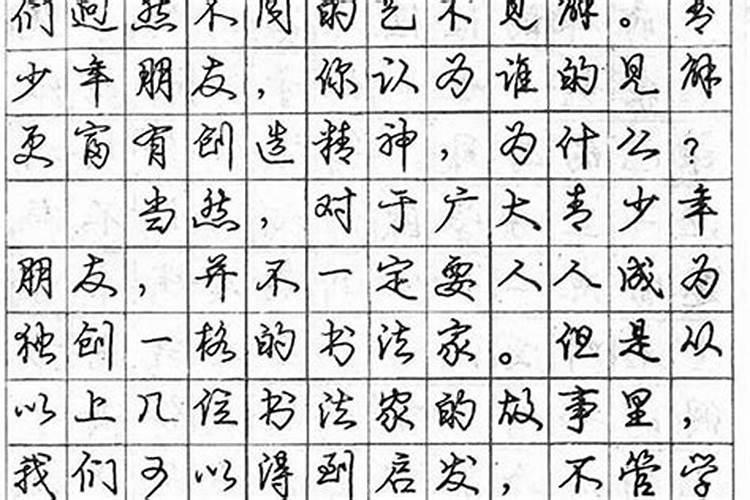 们迥然不同的艺术见解。青
少年朋友，你认为谁的见解
更富有创造精神，为什么？
当然，对于广大青少年
朋友，并不一定要人人成为
独创一格的书法家。但是从
以上几位书法家的故事里，
我们可以得到启发，不管学